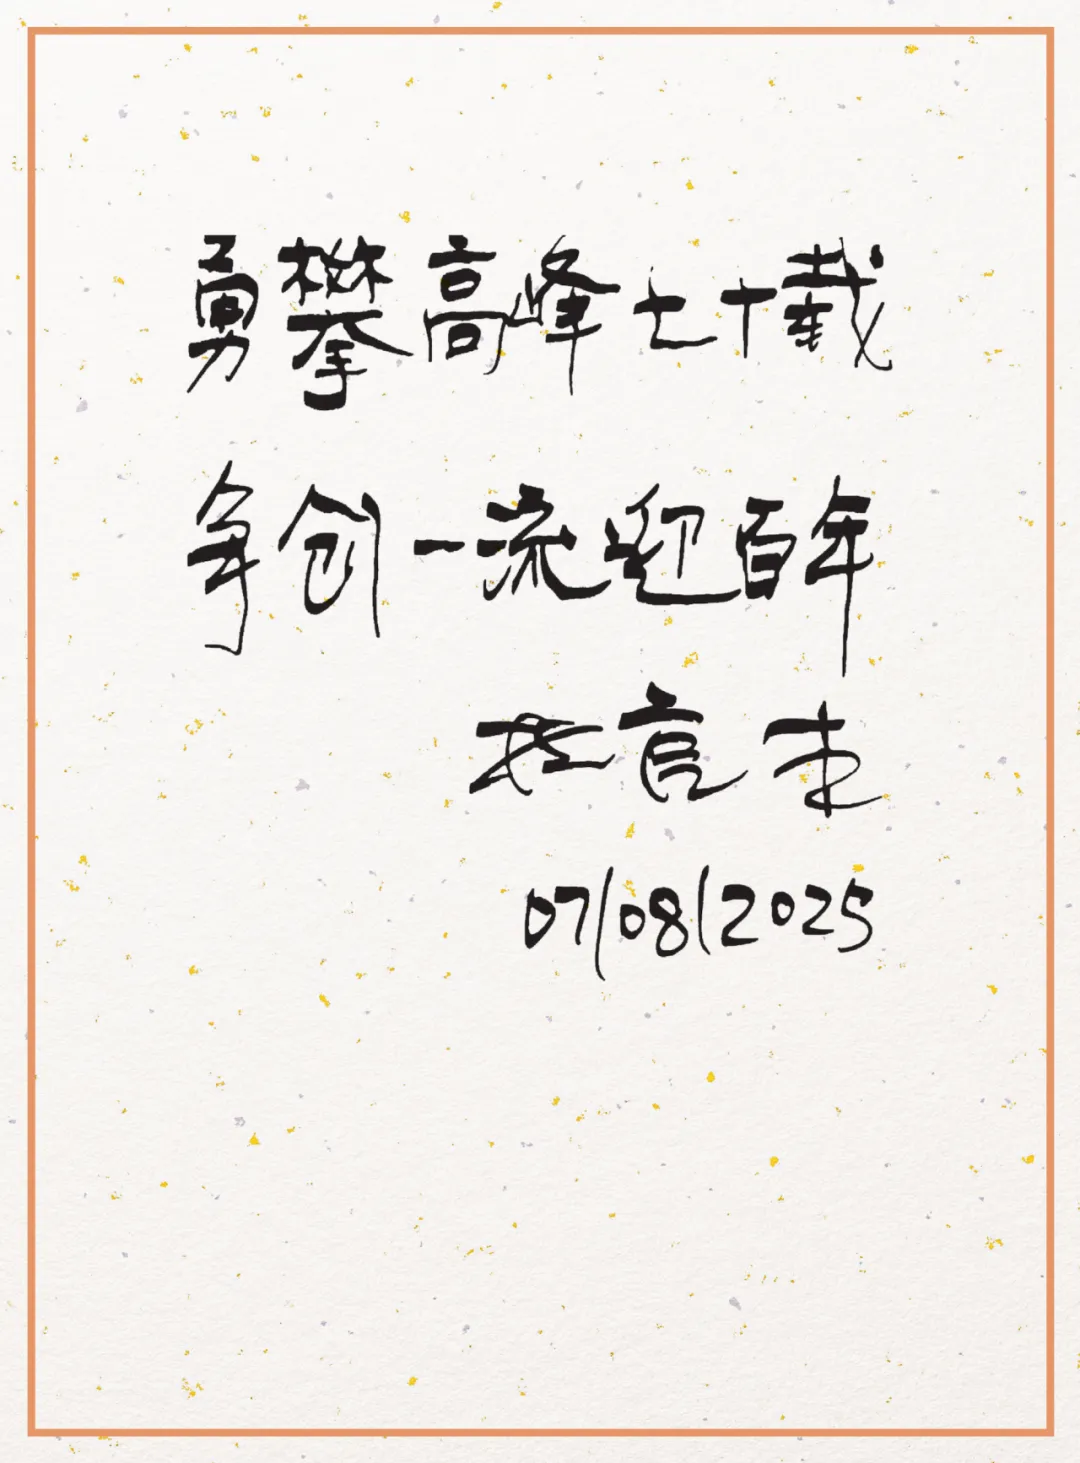 勇攀高峰七十载
争创一流迎百年
07/08/2025